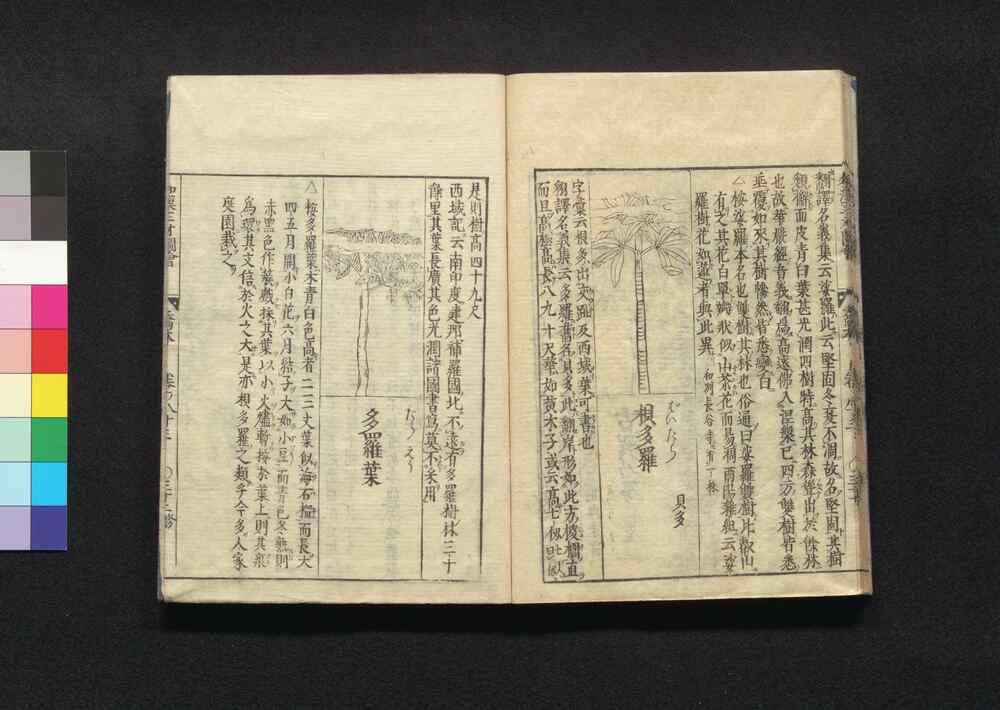 翻譯名義集云娑羅此云堅固冬夏不凋故名堅固其樹
類槲而皮青白葉甚光潤四樹特高其林森聳出於餘林
也故華嚴經音義翻為高遠佛入涅槃已四方雙樹皆悉
垂覆如來其樹慘然皆悉變白
△按娑羅本名也雙樹其林也俗通曰娑羅雙樹比叡山
有之其花白單瓣狀似山茶花而易凋
羅樹花如蓮者與此異 和州長谷寺有一株
根多羅
ばいたら
貝多
字彙云根多出交趾及西域葉可書也
翻譯名義集云多羅舊名貝多此翻岸形如此方椶櫚直
而且高極高長八九十尺華如黃米子或云高七仞
是則樹高四十九尺
西域記云南印度建那補羅國北不遠有多羅樹林三十
餘里其葉長廣其色光潤諸國書寫莫不采用
多羅葉
たらえう
△按多羅葉木青白色高者二三丈葉似海石榴而長大
四五月開小白花六月結子大如小豆而青色冬熟則
赤黑色作簇戲採其葉以小火燼暫按於葉上則其氣
為環其文信於火之大是亦根多羅之類乎今多人家
庭園栽之